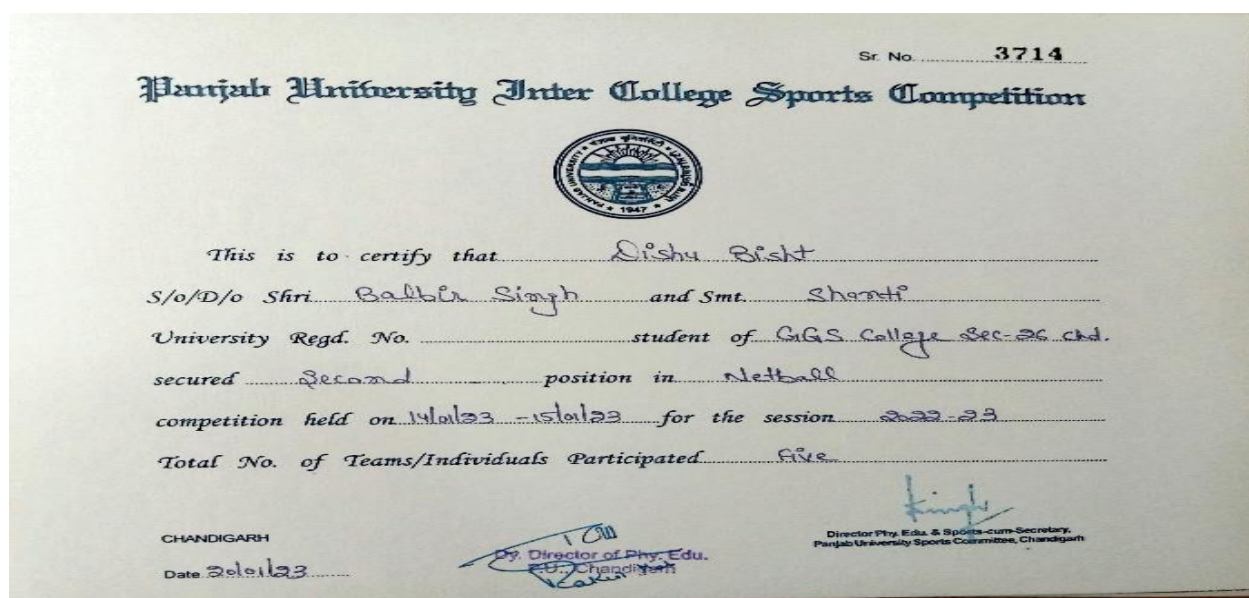 Sr. No. 3714
Panjab University Inter College Sports Competition
PANJAB UNIVERSITY
1947
This is to certify that Dishu Bisht
S/o/D/o Shri Balbir Singh and Smt. Shanti
University Regd. No. student of GGS College Sec-26 chd.
secured Second position in Netball
competition held on 14/01/23 - 15/01/23 for the session 2022-23
Total No. of Teams/Individuals Participated Five
CHANDIGARH
Date 20/01/23
Dy. Director of Phy. Edu.
P.U., Chandigarh
Director Phy. Edu. & Sports-cum-Secretary,
Panjab University Sports Committee, Chandigarh